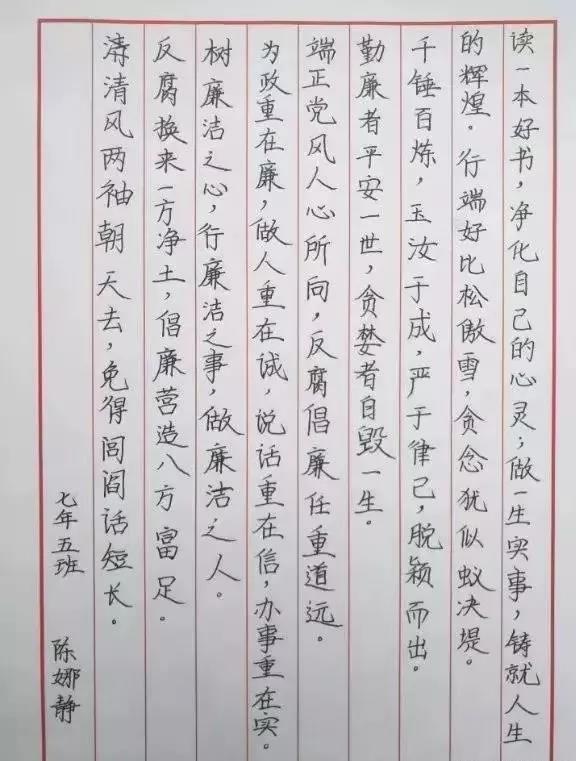 读一本好书，净化自己的心灵；做一生实事，铸就人生
的辉煌。行端好比松傲雪，贪念犹似蚁决堤。
千锤百炼，玉汝于成，严于律己，脱颖而出。
勤廉者平安一世，贪婪者自毁一生。
端正党风人心所向，反腐倡廉任重道远。
为政重在廉，做人重在诚，说话重在信，办事重在实。
树廉洁之心，行廉洁之事，做廉洁之人。
反腐换来一方净土，倡廉营造八方富足。
清清风两袖朝天去，免得闾阎话短长。
七年五班 陈娜静